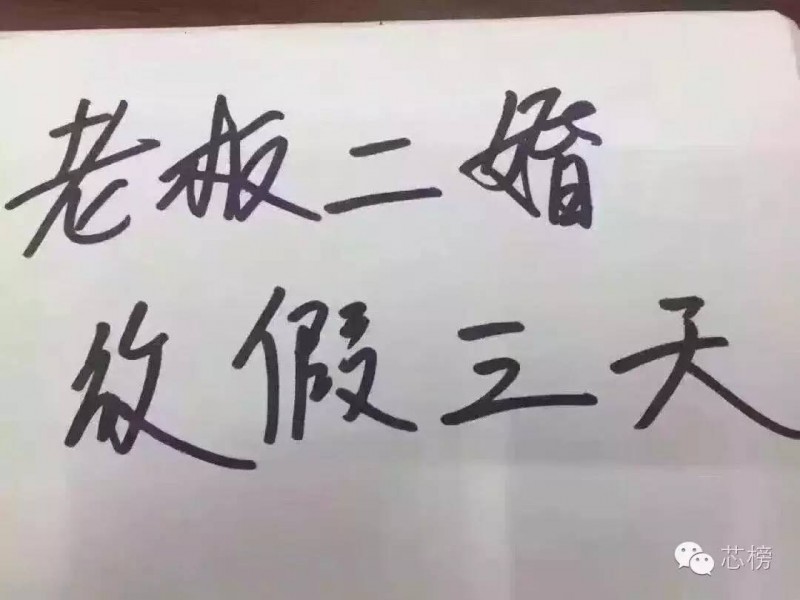 老板二婚
放假三天
芯榜